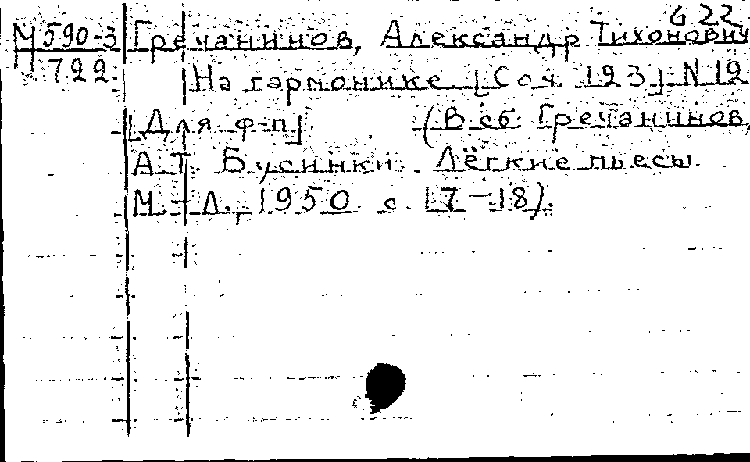 622
М 590-3 Гречанинов, Александр Тихонович
722 На гармонике [Соч. 123] N 12
[Для ф-п] (В сб: Гречанинов,
А.Т. Бусинки. Лёгкие пьесы.
М.-Л., 1950 с. 17-18).